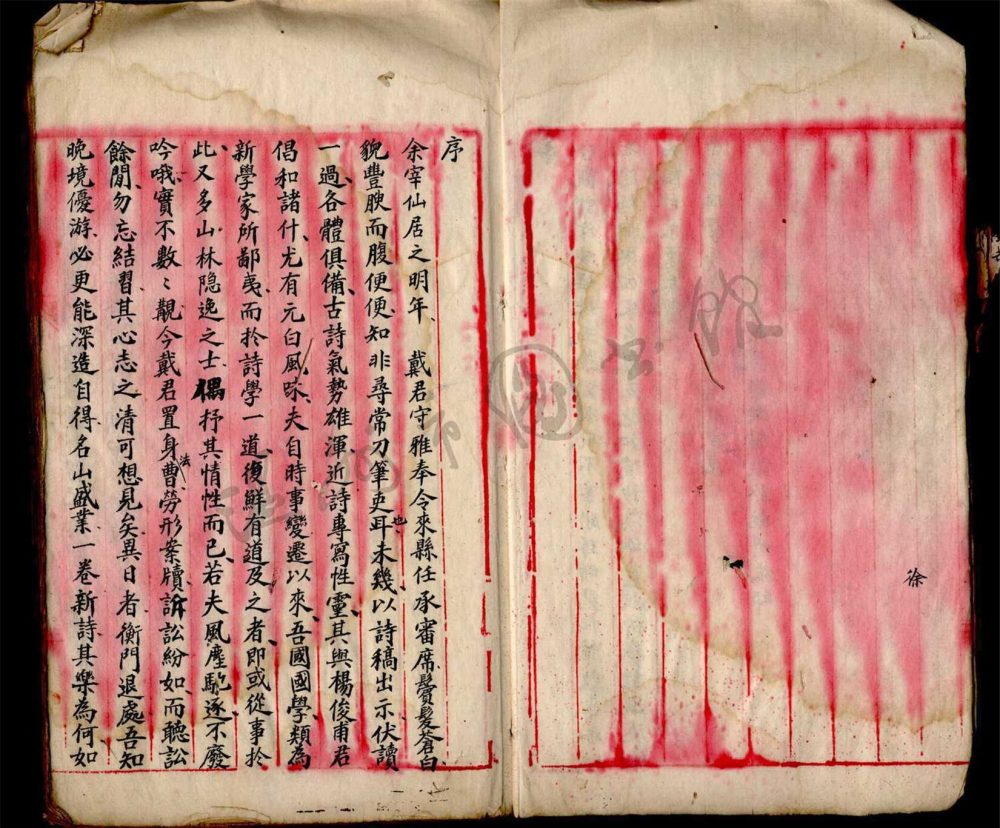 徐
序
余宰仙居之明年戴君守雅奉令來縣任承審席鬢髮蒼白
貌豐腴而腹便便知非尋常刀筆吏耳也未幾以詩稿出示伏讀
一過各體俱備古詩氣勢雄渾近詩專寫性靈其與楊俊甫君
倡和諸什尤有元白風味夫自時事變遷以來吾國國學類為
新學家所鄙夷而於詩學一道復鮮有道及之者即或從事於
此又多山林隐逸之士偶抒其情性而已若夫風塵馳逐不廢
吟哦實不數數覯今戴君置身法曹勞形案牘訴訟紛如而聽訟
餘閒勿忘結習其心志之清可想見矣異日者衡門退處吾知
晚境優游必更能深造自得名山盛業一卷新詩其樂為何如